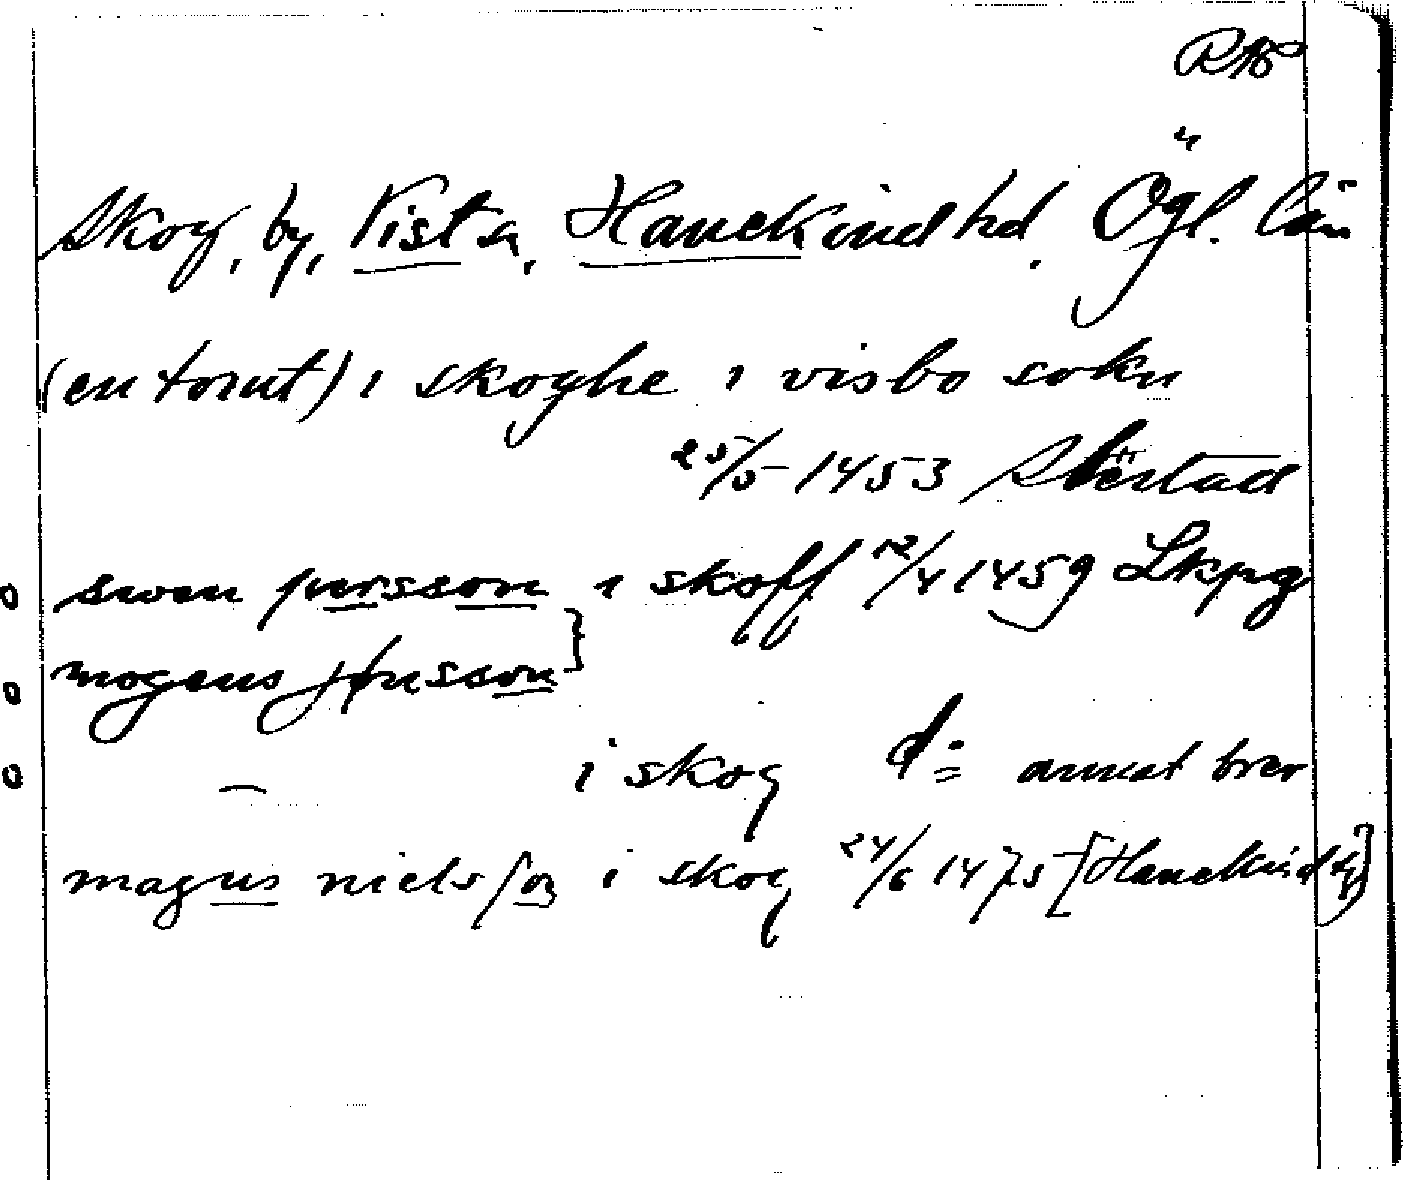 RAP
Skog, by, Vist sn, Hanekinds hd. Ögl. län
(en tomt) i skoghe i visbo sokn
25/5 1453
swen persson i skoff 12/4 1459 Lkpg
mogens jønsson }
i skog d:o annat brev
magnus nielsson i skog 24/6 1475 [Hanekinds hd]